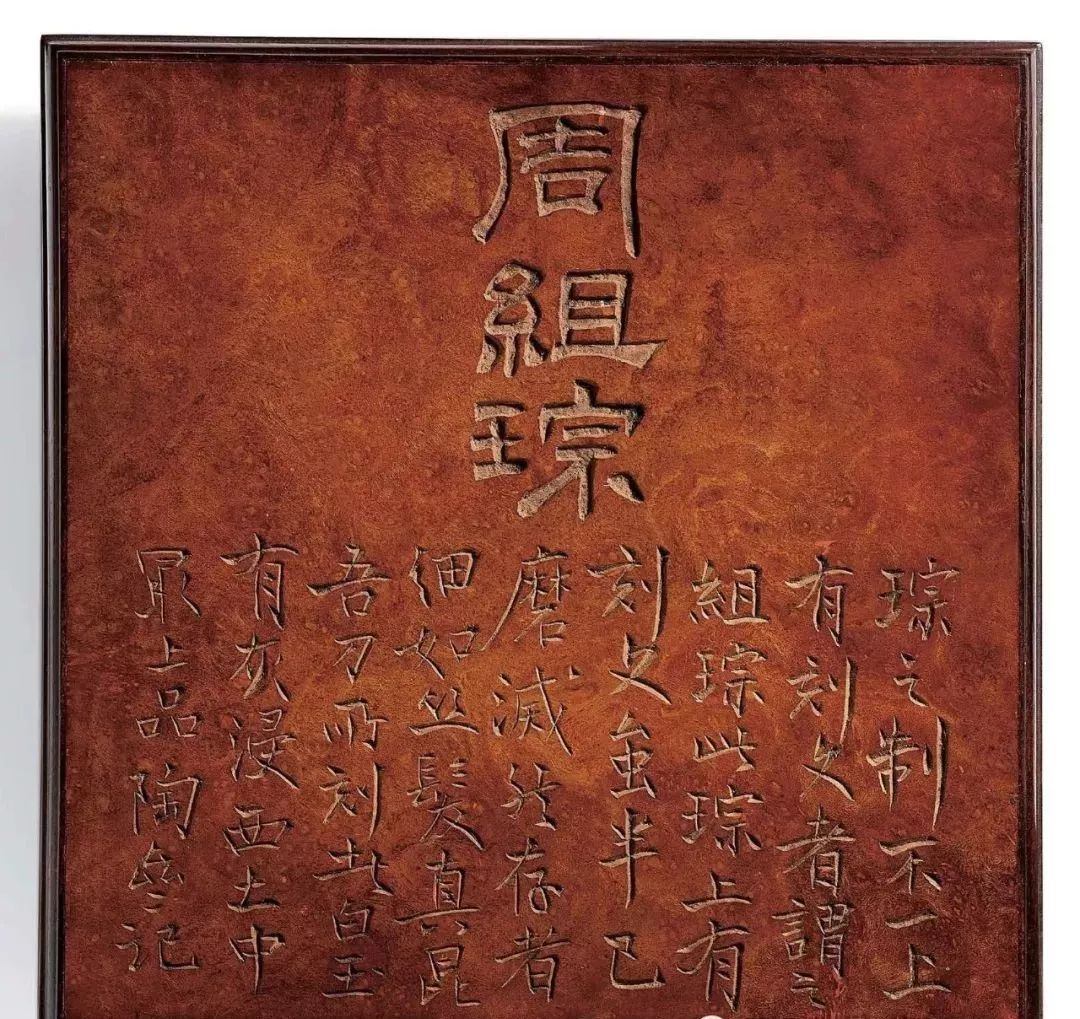 周組琮
琮之制不一上
有刻文者謂之
組琮此琮上有
刻文虽半已
磨滅然存者
細如丝髮真昆
吾刀所刻此白玉
有灰浸西土中
最上品陶齋记